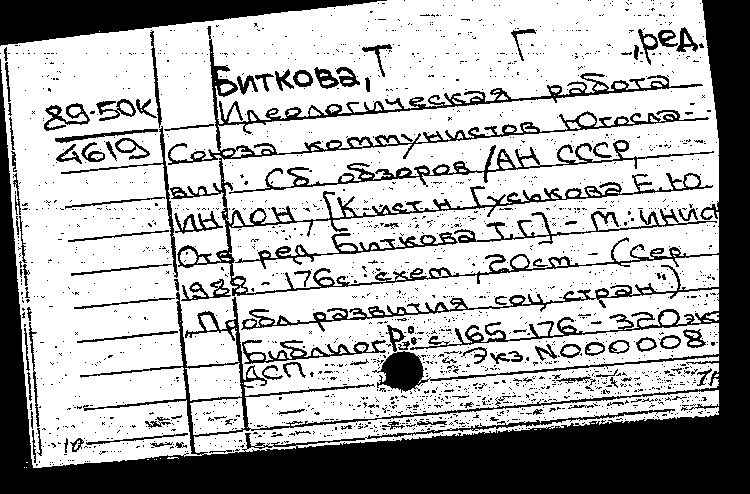 Биткова, Т Г , ред.
89-50к
4619
Идеологическая работа
Союза коммунистов Югосла-
вии: Сб. обзоров /АН СССР,
ИНИОН; [К.ист.н. Гуськова Е.Ю.
Отв. ред. Биткова Т.Г.] - М.: ИНИОН
1988. - 176с.: схем. ; 20см. - (Сер.
"Пробл. развития соц. стран")
Библиогр.: с 165-176. - 320 экз
ДСП. Экз. N000008.
10